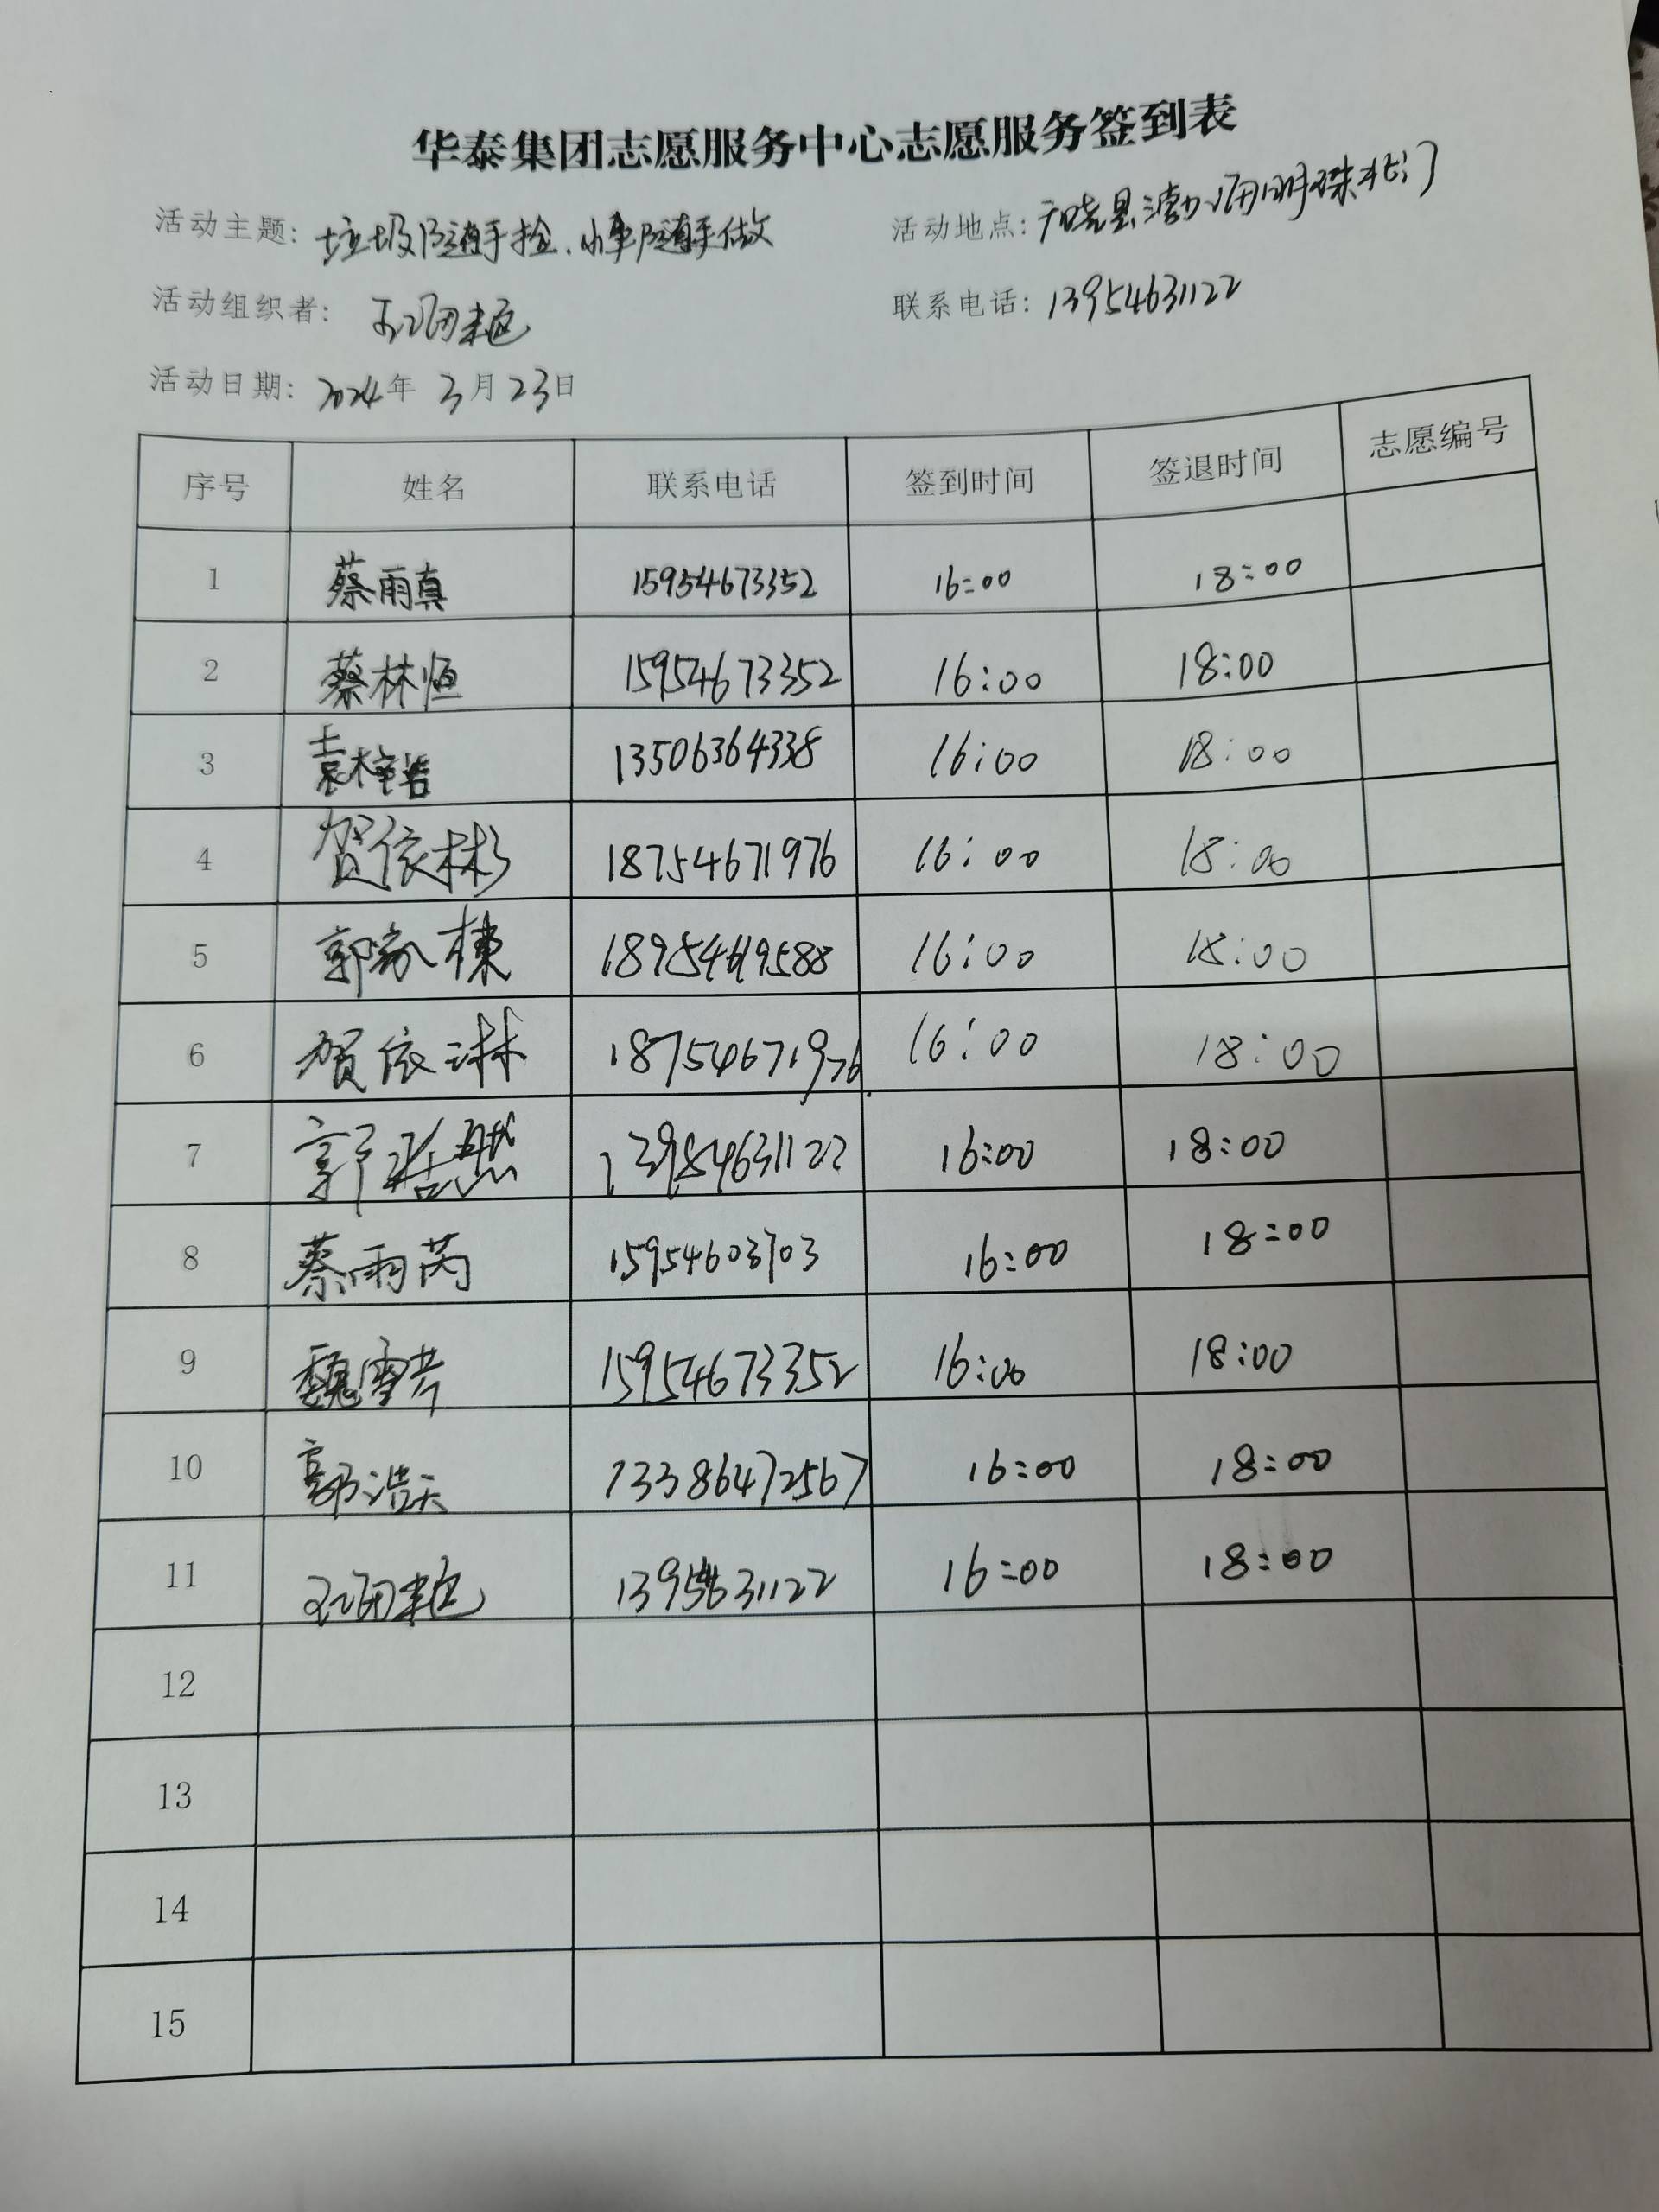 华泰集团志愿服务中心志愿服务签到表
活动主题: 垃圾随手捡、小事随手做 活动地点: 广饶县渤海明珠北门
活动组织者: 联系电话: 13954631122
活动日期: 2024年 3月23日
序号 姓名 联系电话 签到时间 签退时间 志愿编号
1 蔡雨真 15954673352 16:00 18:00
2 蔡林恒 15954673352 16:00 18:00
3 袁梓皓 13506364338 16:00 18:00
4 贺依彬 18754671976 16:00 18:00
5 郭家棟 16:00 18:00
6 贺依琳 18754671976 16:00 18:00
7 郭浩然 16:00 18:00
8 蔡雨芮 15954603703 16:00 18:00
9 魏雪芹 15954673352 16:00 18:00
10 郭浩天 13386472567 16:00 18:00
11 13954631122 16:00 18:00
12
13
14
15